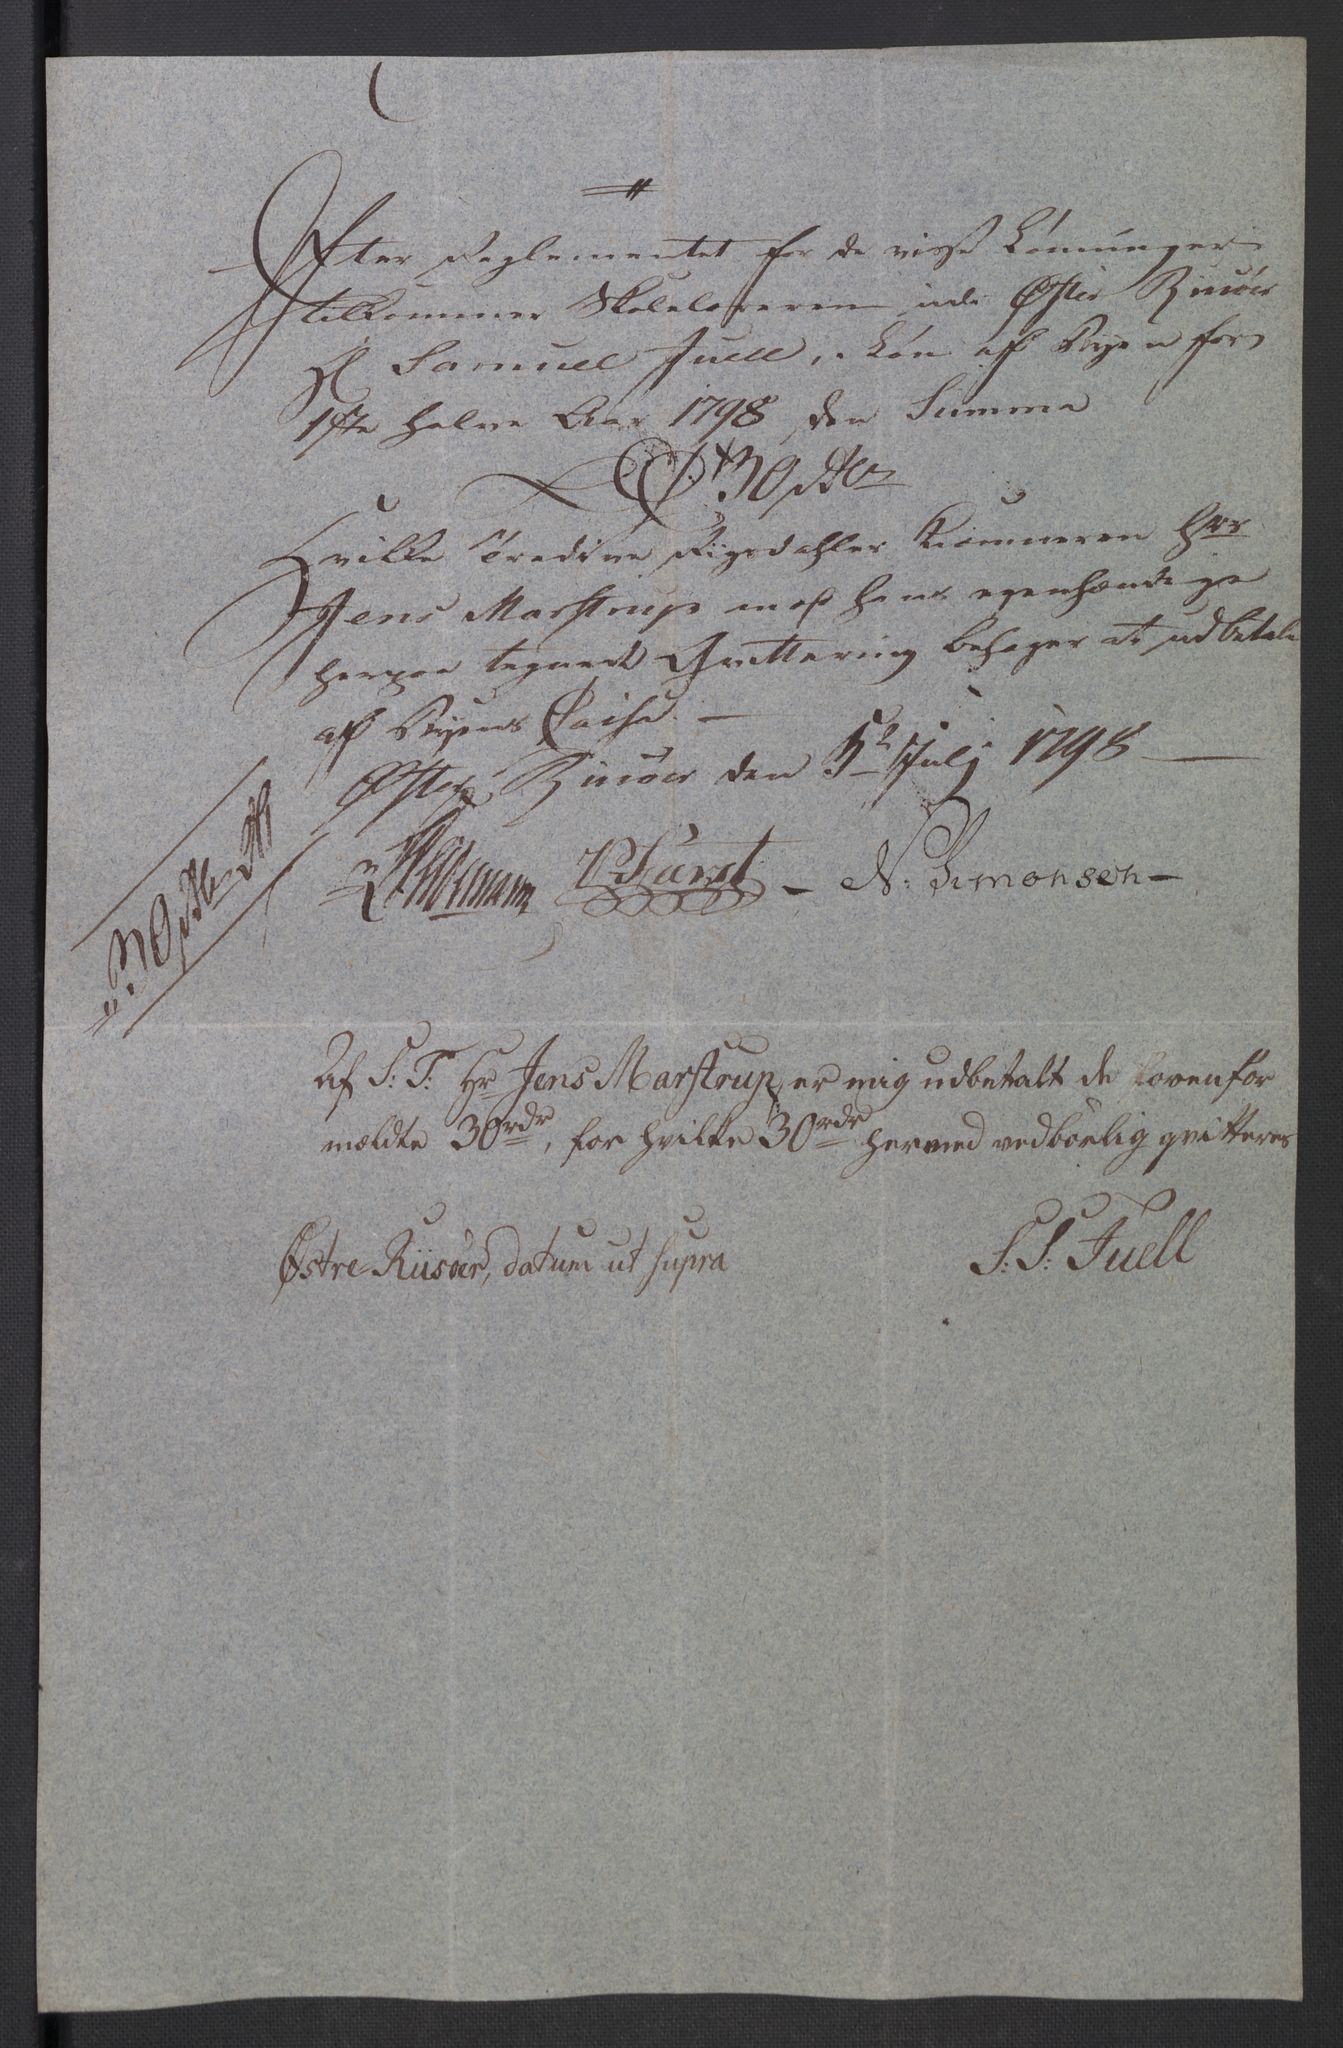 Efter Reglementet for de visse Lønninger
tilkommer Skolelæreren udi Øster Riisöer
Hr Samuel Juell, i Løn af Byen for
1ste halve Aar 1798 den Summa
30 rdlr
Hvilke Tredive Rigsdahler Kiæmneren Herr
Jens Marstrup mod hans egenhændige
herpaa tegnede Qvittering behager at udbetale
af Byens Cassa. —
Øster Riisöer den 5te Julj 1798 —
P Fürst — N: Simonsen —
30 rdlr
Af S: T: Hr Jens Marstrup, er mig udbetalt de foranfor
mældte 30 rdr, for hvilke 30 rdr herved vedbørlig qvitteres
Østre Riisöer, datum ut supra
S: S: Juell